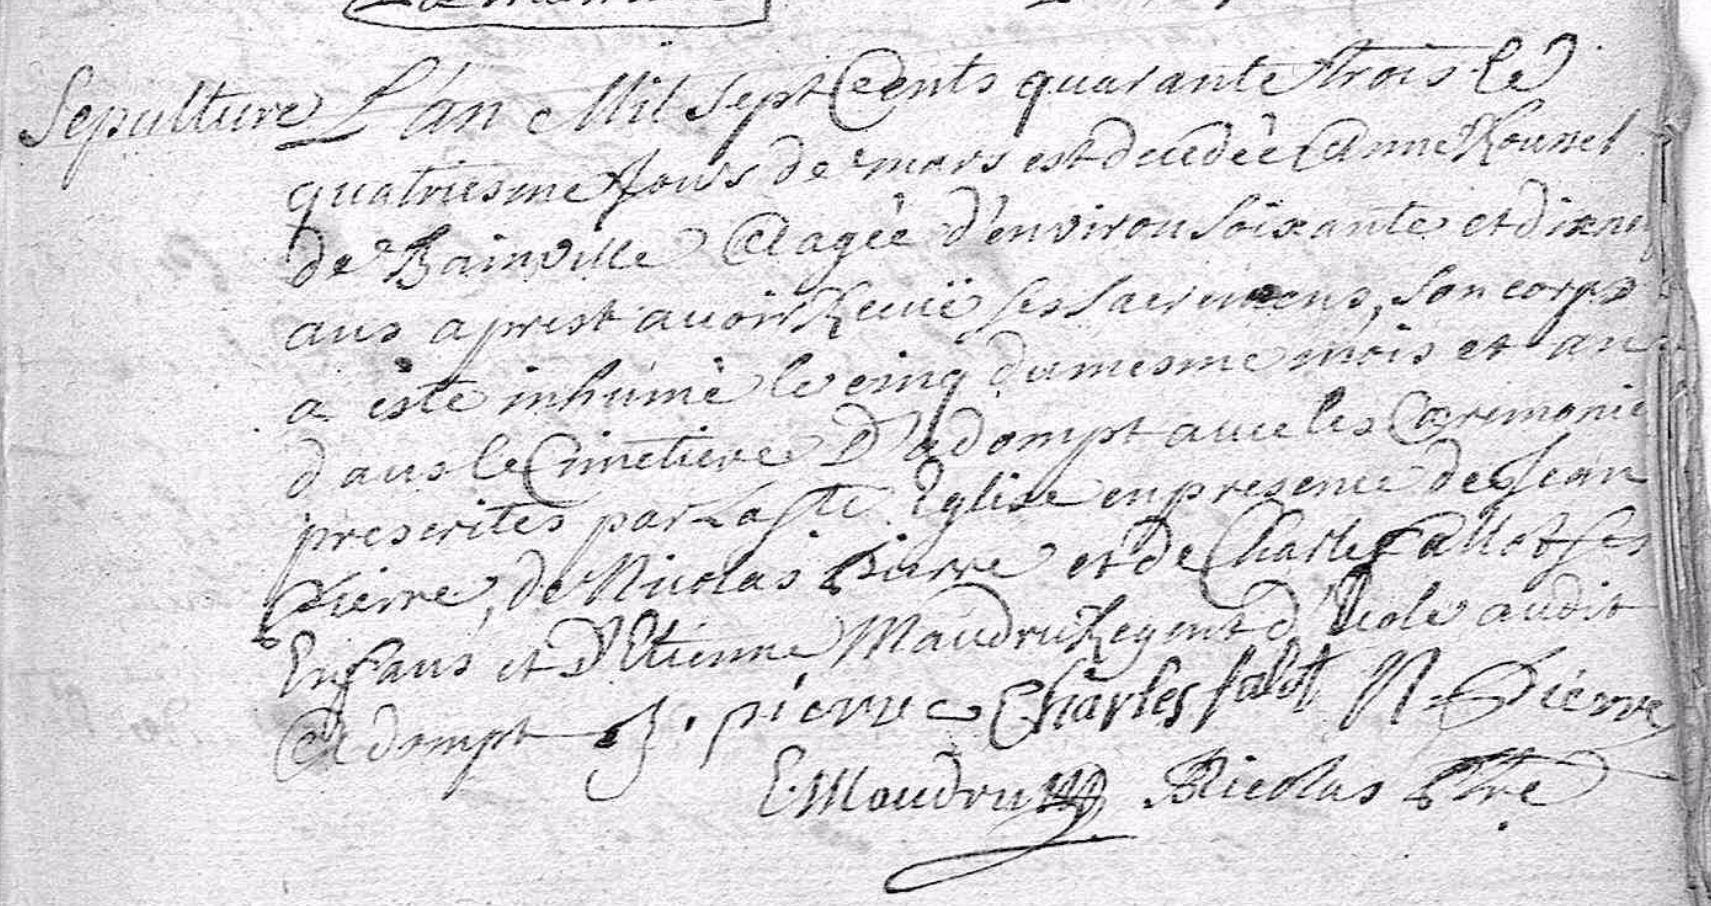 Sepulture L'an Mil sept Cents quarante trois le
quatriesme Jour de mars est decedèe Anne Roussel
de Bainville Aagèe d'environ soixante et dix neuf
ans aprest avoir Receüe ses sacremens, son corps
a èsté inhumè le cinq du mesme mois et an
dans le Cimetiere D'adompt avec les Cæremonie
prescrites par La ste Eglise en presence de Jean
Pierre, de Nicolas Pierre et de Charles fallot ses
Enfans et D'Etienne Maudru Regent d'Ecole audit
Adompt J. pierre Charles falot N. Pierre
E. Maudru Nicolas Ptre